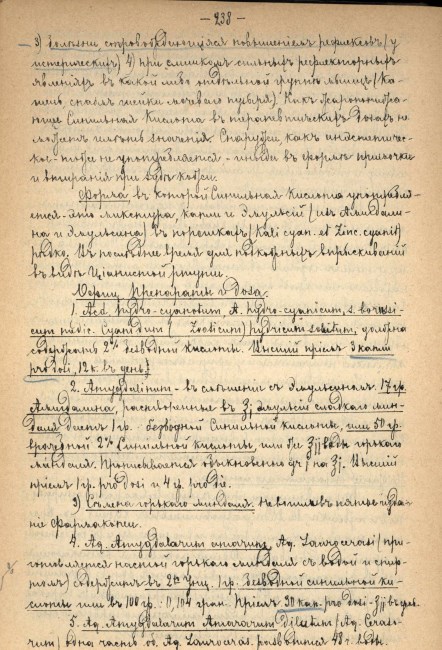 - 938 -
3) болѣзни, сопровождающіяся повышеніемъ рефлексовъ /у
истеричекъ/ 4) при слишкомъ сильныхъ рефлекторныхъ
явленіяхъ въ какой либо отдѣльной группѣ мышцъ /Ка-
шель, спазмъ шейки мочевого пузыря/. Какъ
Синильная Кислота въ терапевтическихъ дозахъ не
можетъ имѣть значенія. Снаружи, какъ анестетичес-
кое - тоже не употребляется - иногда въ формѣ примочки
и втиранія при зудѣ кожи.
Форма въ которой Синильная Кислота употребляе-
тся - это микстура, капли и Эмульсій /изъ Амигдали-
на и Эмульсина/ въ порошкахъ /Kali cyan. et Zinc. cyanit/
рѣдко. Въ послѣднее время для подкожныхъ впрыскиваній
въ видѣ Ціанистой ртути.
Офиц. Препараты и doза.
1. Acd. hydro-cyanatum, A. hydro-cyanicum, s. borussi-
cum medic. Cyanidum / Zooticum/ hydricum solutum, должна
содержать 2% безводной кислоты. Высшій пріемъ 3 капли
pro dosi, 12 к. въ день!
2. Amygdalinum - въ смѣшеніи съ Эмульсиномъ. 17 гр.
Амигдалина, растворенные въ ℥j эмульсіи сладкаго мин-
даля даютъ 1 гр. безводной Синильной кислоты, или 50 гр.
2% Синильной кислоты, или же ℥jj воды горькаго
миндаля. Прописывается обыкновенно gr j на ℥j. Высшій
пріемъ 1 гр. pro dosi и 4 гр. pro die.
3) Сѣмена горькаго миндаля. Не вошли въ изда-
ніе Фармакопеи.
4. Aq. Amygdalarum amarum. Aq. Laurocerasi /при-
готовляется настой горькаго миндаля съ водой и спир-
томъ/ содержитъ въ 2хъ унц. 1 гр. безводной синильной ки-
слоты или въ 100 гр.: 0,104 гран. Пріемъ 30 кап. pro dosi - ℥jj въ день.
5. Aq. Amygdalarum Amararum dilutum /Aq. Ceras-
rum/ одна часть об. Aq. Laurocerasi разводится 48 г. воды.